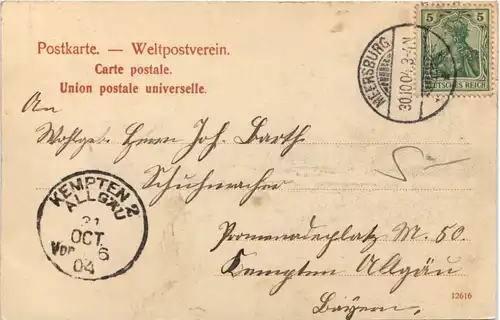 Postkarte. — Weltpostverein.
Carte postale.
Union postale universelle.
5 5
DEUTSCHES REICH
MEERSBURG
30.10.04.3-4N.
An
Wohlgeb. Herrn Joh. Barth
Schuhmacher
Promenadeplatz M. 50
Kempten Allgäu
Bayern.
KEMPTEN 2
ALLGÄU
31
OCT.
Vor. 6
04
12616